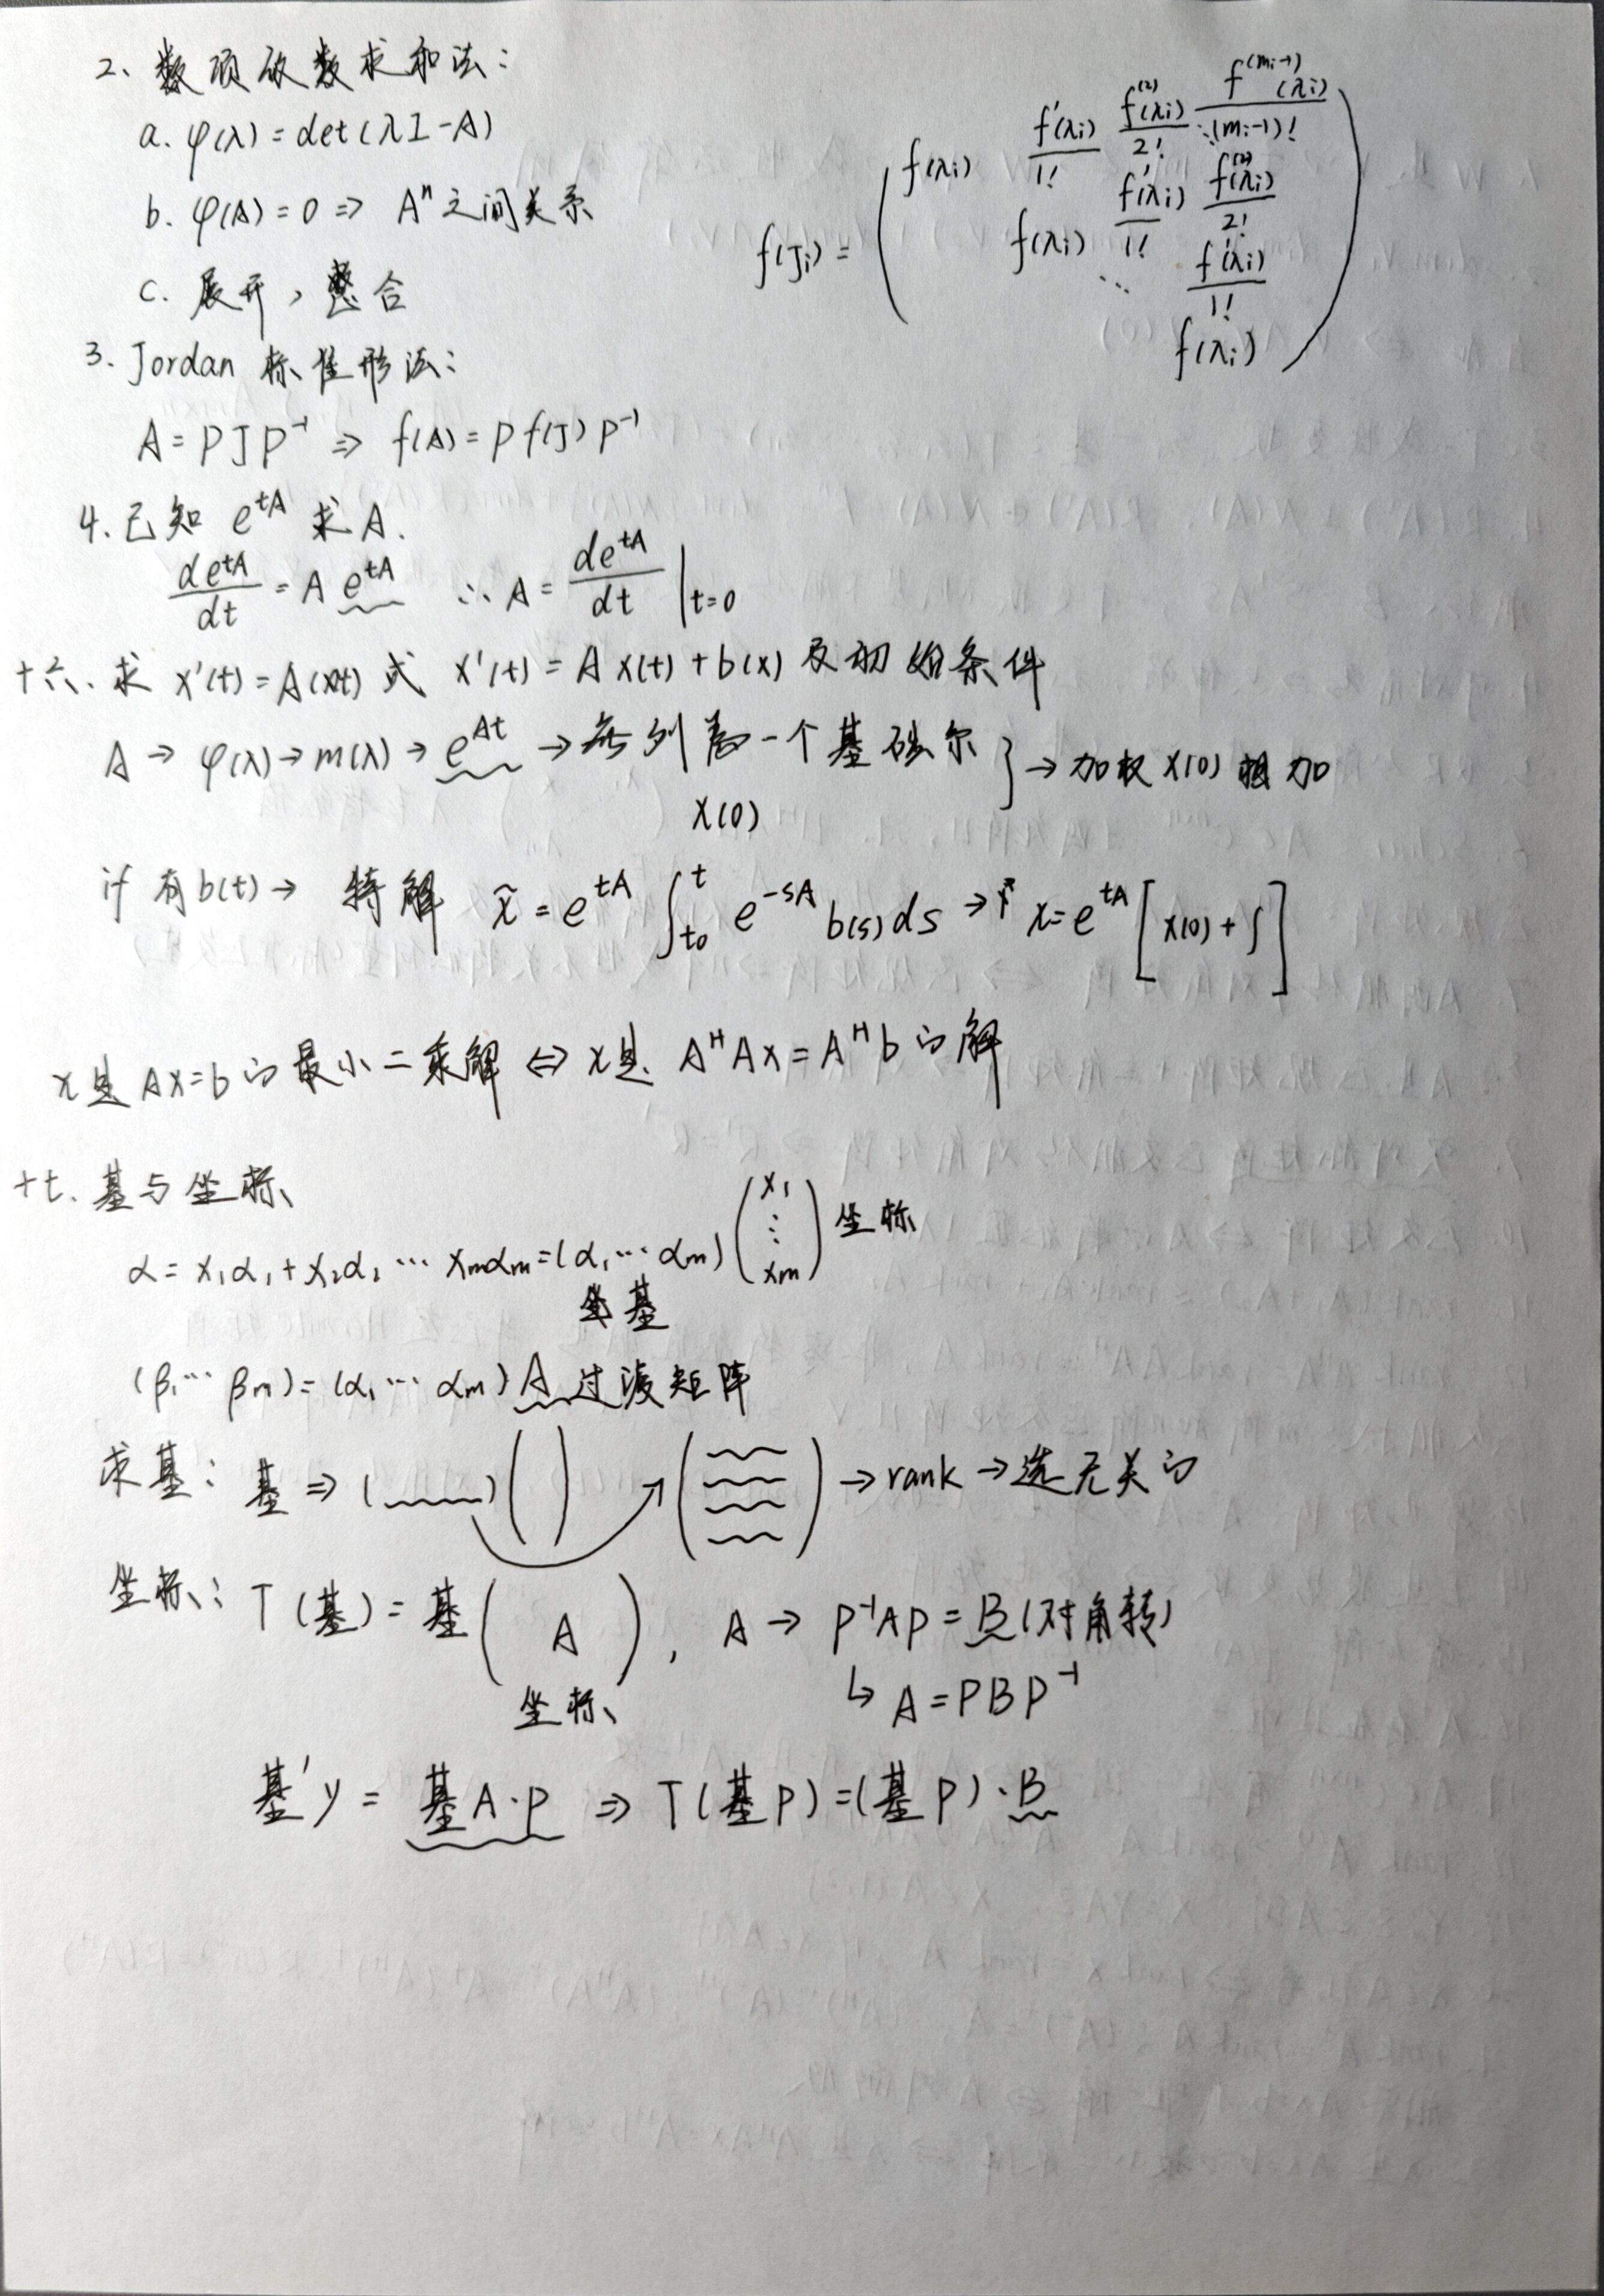 2、数项级数求和法：
a. φ(λ) = det(λI-A)
b. φ(A) = 0 => Aⁿ 之间关系
c. 展开，整合
f(Ji) = ( f(λi) f'(λi)/1! f⁽²⁾(λi)/2! ⋱ f⁽ᵐⁱ⁻¹⁾(λi)/(mi-1)!
f(λi) f'(λi)/1! f⁽²⁾(λi)/2!
⋱ f'(λi)/1!
f(λi) )
3. Jordan 标准形法：
A = PJP⁻¹ => f(A) = P f(J) P⁻¹
4. 已知 e^{tA} 求 A.
de^{tA}/dt = A e^{tA} ∴ A = de^{tA}/dt |t=0
十六、求 x'(t) = A(xt) 或 x'(t) = A x(t) + b(x) 及初始条件
A → φ(λ) → m(λ) → e^{At} → 每列为一个基础解 } → 加权 x(0) 相加
X(0)
if 有 b(t) → 特解 x̃ = e^{tA} ∫_{t0}^{t} e^{-sA} b(s) ds → x = e^{tA} [ x(0) + ∫ ]
x是 Ax=b 的最小二乘解 ⇔ x是 AᴴAx = Aᴴb 的解
十七、基与坐标
α = x₁α₁ + x₂α₂ ⋯ xmαm = (α₁ ⋯ αm) (x₁ ⋮ xm) 坐标
基
(β₁ ⋯ βm) = (α₁ ⋯ αm) A 过渡矩阵
求基：基 => ( ) ( ) ( ) → rank → 选无关的
坐标：T(基) = 基( A ), A → P⁻¹AP = B (对角转)
坐标 ↳ A = PBP⁻¹
基'y = 基A·P => T(基P) = (基P)·B